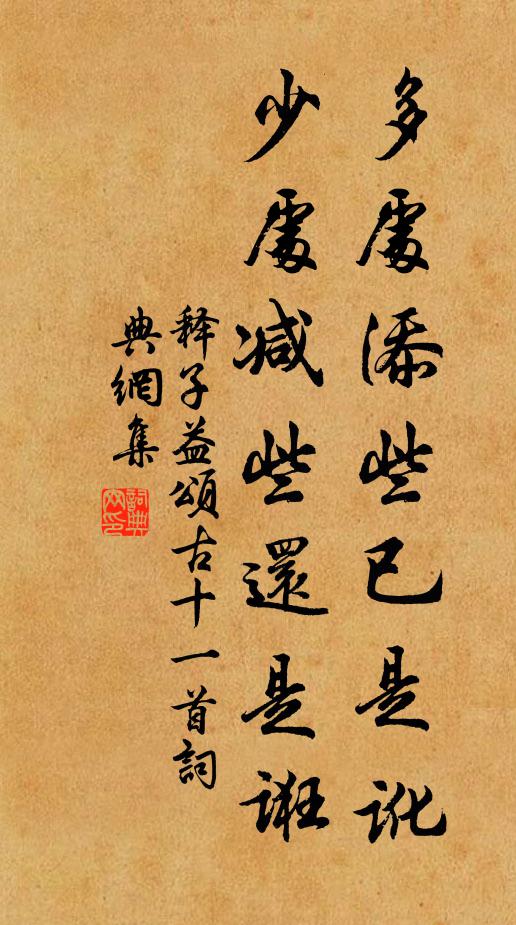 多處添些已是訛
少處減些還是誑
釋子益頌古十一首詞
典網集
詞典網印